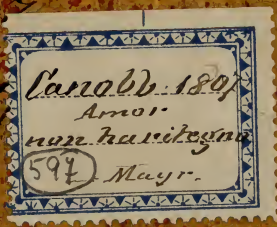 Canobb. 1807
Amor
non haritegno
597 Mayr.